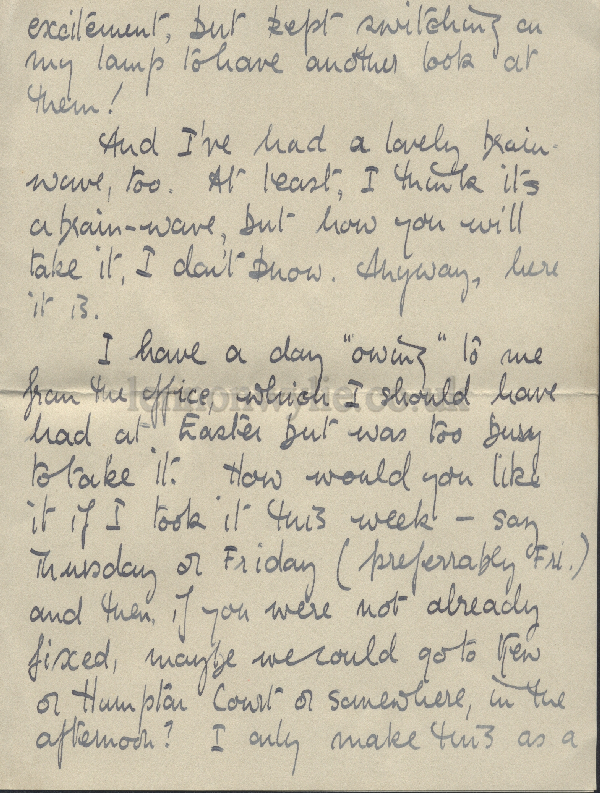 excitement, but kept switching on
my lamp to have another look at
them!
And I've had a lovely brain-
wave, too. At least, I think it's
a brain-wave, but how you will
take it, I don't know. Anyway, here
it is.
I have a day "owing" to me
from the office, which I should have
had at Easter but was too busy
to take it. How would you like
it if I took it this week - say
Thursday or Friday (preferrably Fri.)
and then, if you were not already
fixed, maybe we could go to Kew
or Hampton Court or somewhere, in the
afternoon? I only make this as a
lennonwylie.co.uk